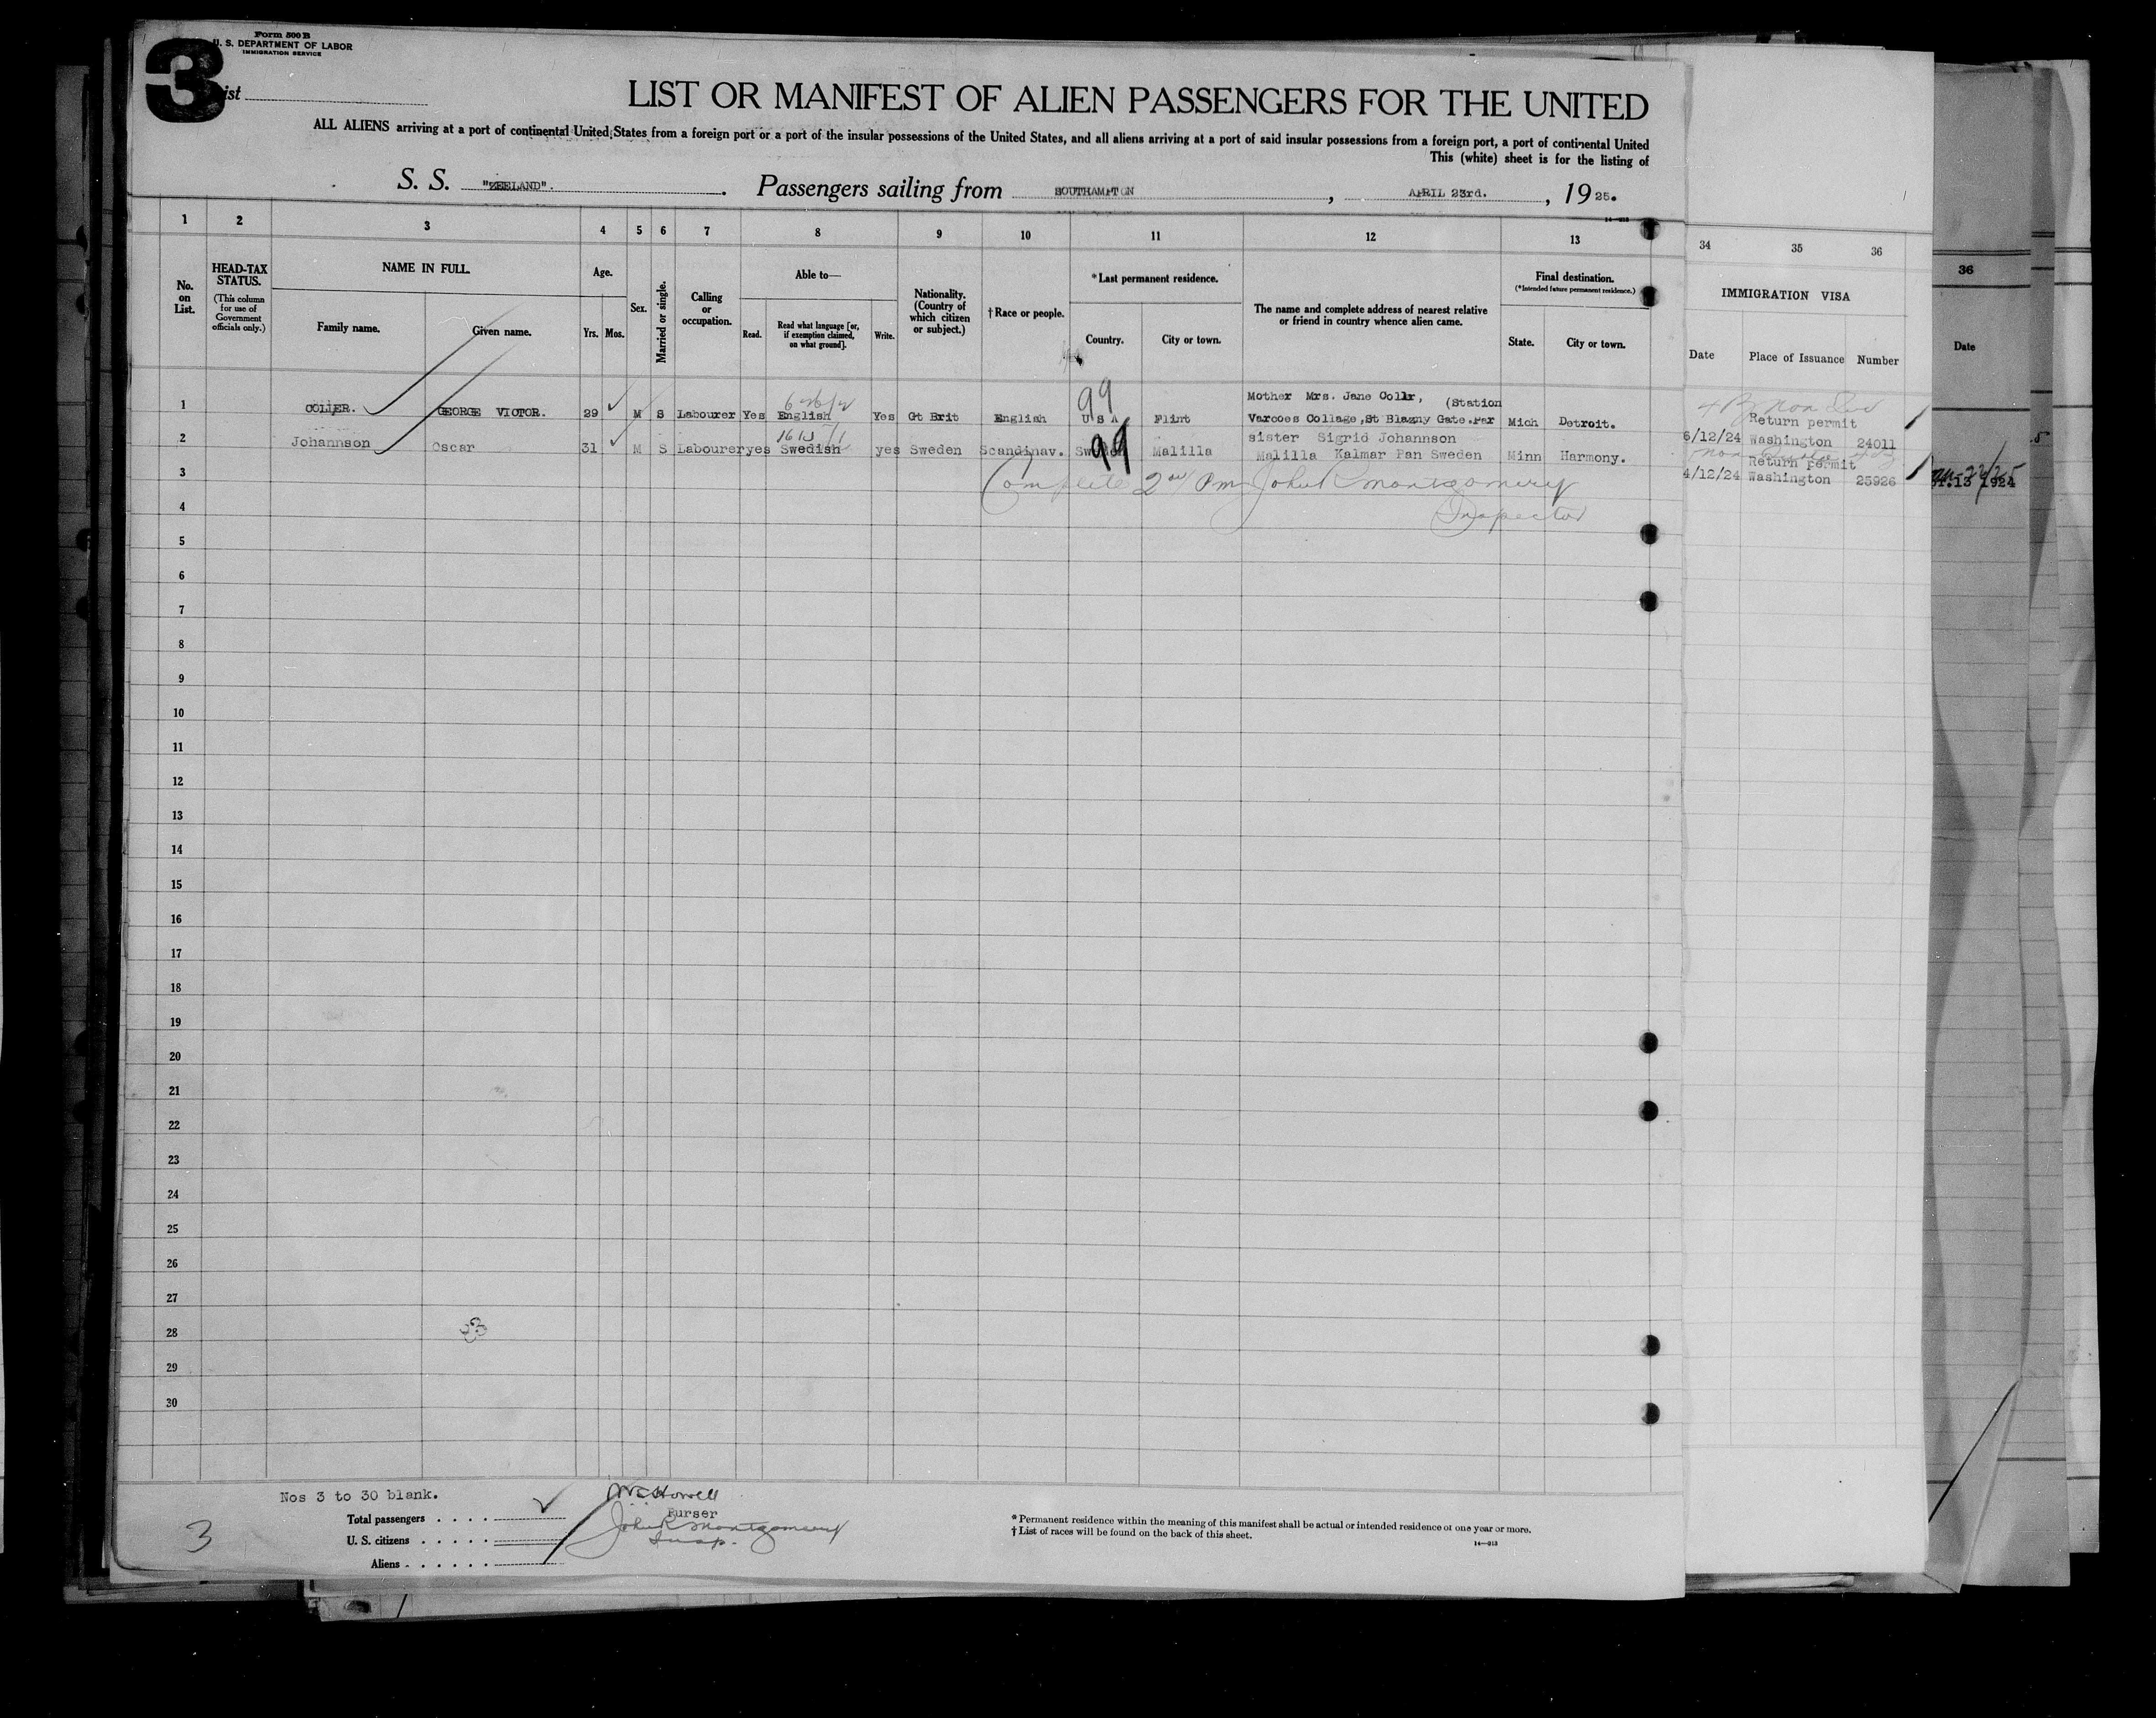 3
Form 500 B
U. S. DEPARTMENT OF LABOR
IMMIGRATION SERVICE
ist
LIST OR MANIFEST OF ALIEN PASSENGERS FOR THE UNITED
ALL ALIENS arriving at a port of continental United States from a foreign port or a port of the insular possessions of the United States, and all aliens arriving at a port of said insular possessions from a foreign port, a port of continental United
This (white) sheet is for the listing of
S. S. "ZEELAND". Passengers sailing from SOUTHAMPTON, APRIL 23rd., 1925.
1 2 3 4 5 6 7 8 9 10 11 12 13 34 35 36
No. on List.
HEAD-TAX STATUS.
(This column for use of Government officials only.)
NAME IN FULL.
Family name. Given name.
Age.
Yrs. Mos.
Sex.
Married or single.
Calling or occupation.
Able to—
Read. Read what language [or, if exemption claimed, on what ground]. Write.
Nationality. (Country of which citizen or subject.)
† Race or people.
* Last permanent residence.
Country. City or town.
The name and complete address of nearest relative or friend in country whence alien came.
Final destination.
(* Intended future permanent residence.)
State. City or town.
IMMIGRATION VISA
Date Place of Issuance Number
36
Date
99
Mother Mrs. Jane Collr, (Station
1 COLLER. GEORGE VICTOR. 29 M S Labourer Yes English Yes Gt Brit English U S A Flint Varcoes Collage, St Blazny Gate.Par Mich Detroit.
Return permit
6/12/24 Washington 24011
99
sister Sigrid Johannson
2 Johannson Oscar 31 M S Labourer yes Swedish yes Sweden Scandinav. Sweden Malilla Malilla Kalmar Pan Sweden Minn Harmony.
Return permit
4/12/24 Washington 25926
1924
3 Complete 2nd Pm John R Montgomery
4 Inspector
5
6
7
8
9
10
11
12
13
14
15
16
17
18
19
20
21
22
23
24
25
26
27
28
29
30
Nos 3 to 30 blank.
Total passengers
U. S. citizens
Aliens
Howell
Purser
John R Montgomery
Insp.
3
* Permanent residence within the meaning of this manifest shall be actual or intended residence of one year or more.
† List of races will be found on the back of this sheet.
14—913